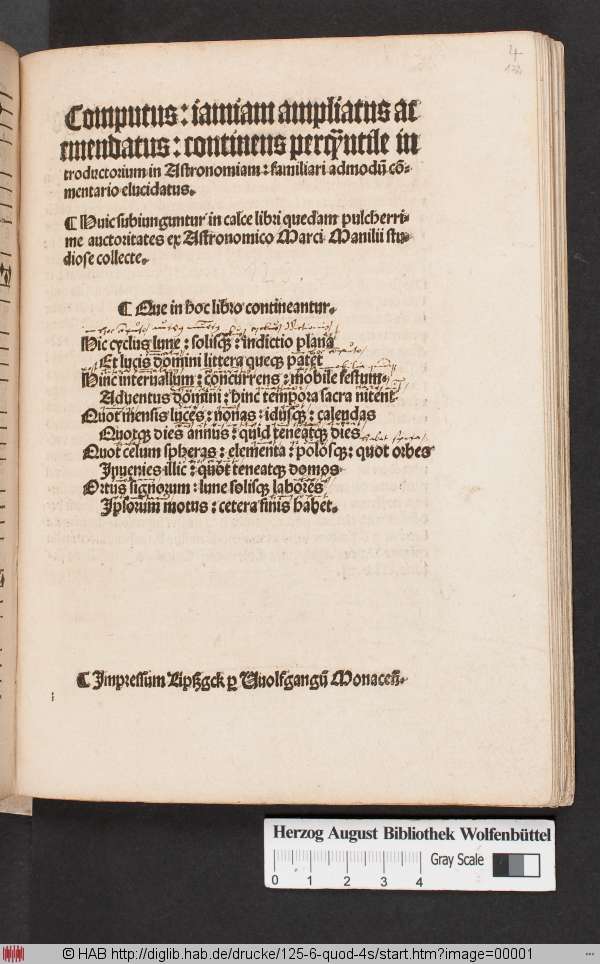 24
Computus: iamiam ampliatus ac
emendatus: continens perqȳ utile in
troductorium in Astronomiam: familiari admodū cō-
mentario elucidatus.
¶ Huic subiunguntur in calce libri quedam pulcherri-
me auctoritates ex Astronomico Marci Manilii stu-
diose collecte.
¶ Que in hoc libro contineantur.
Hic cyclus lune: solisqꝫ: indictio plana
Et lucis domini littera quecqꝫ patet
Hinc interuallum: concurrens: mobile festum.
Aduentus domini: hinc tempora sacra nitent
Quot mensis luces: nonas: idusqꝫ: calendas
Quotqꝫ dies annus: quid teneatqꝫ dies
Quot celum spheras: elementa: polosqꝫ: quot orbes
Inuenies illic: quot teneatqꝫ domos
Ortus signorum: lune solisqꝫ labores
Ipsorum motus: cetera finis habet.
¶ Impressum Liptzgck ꝑ Vuolfgangū Monaceñ.
Herzog August Bibliothek Wolfenbüttel
Gray Scale
0 1 2 3 4
© HAB http://diglib.hab.de/drucke/125-6-quod-4s/start.htm?image=00001